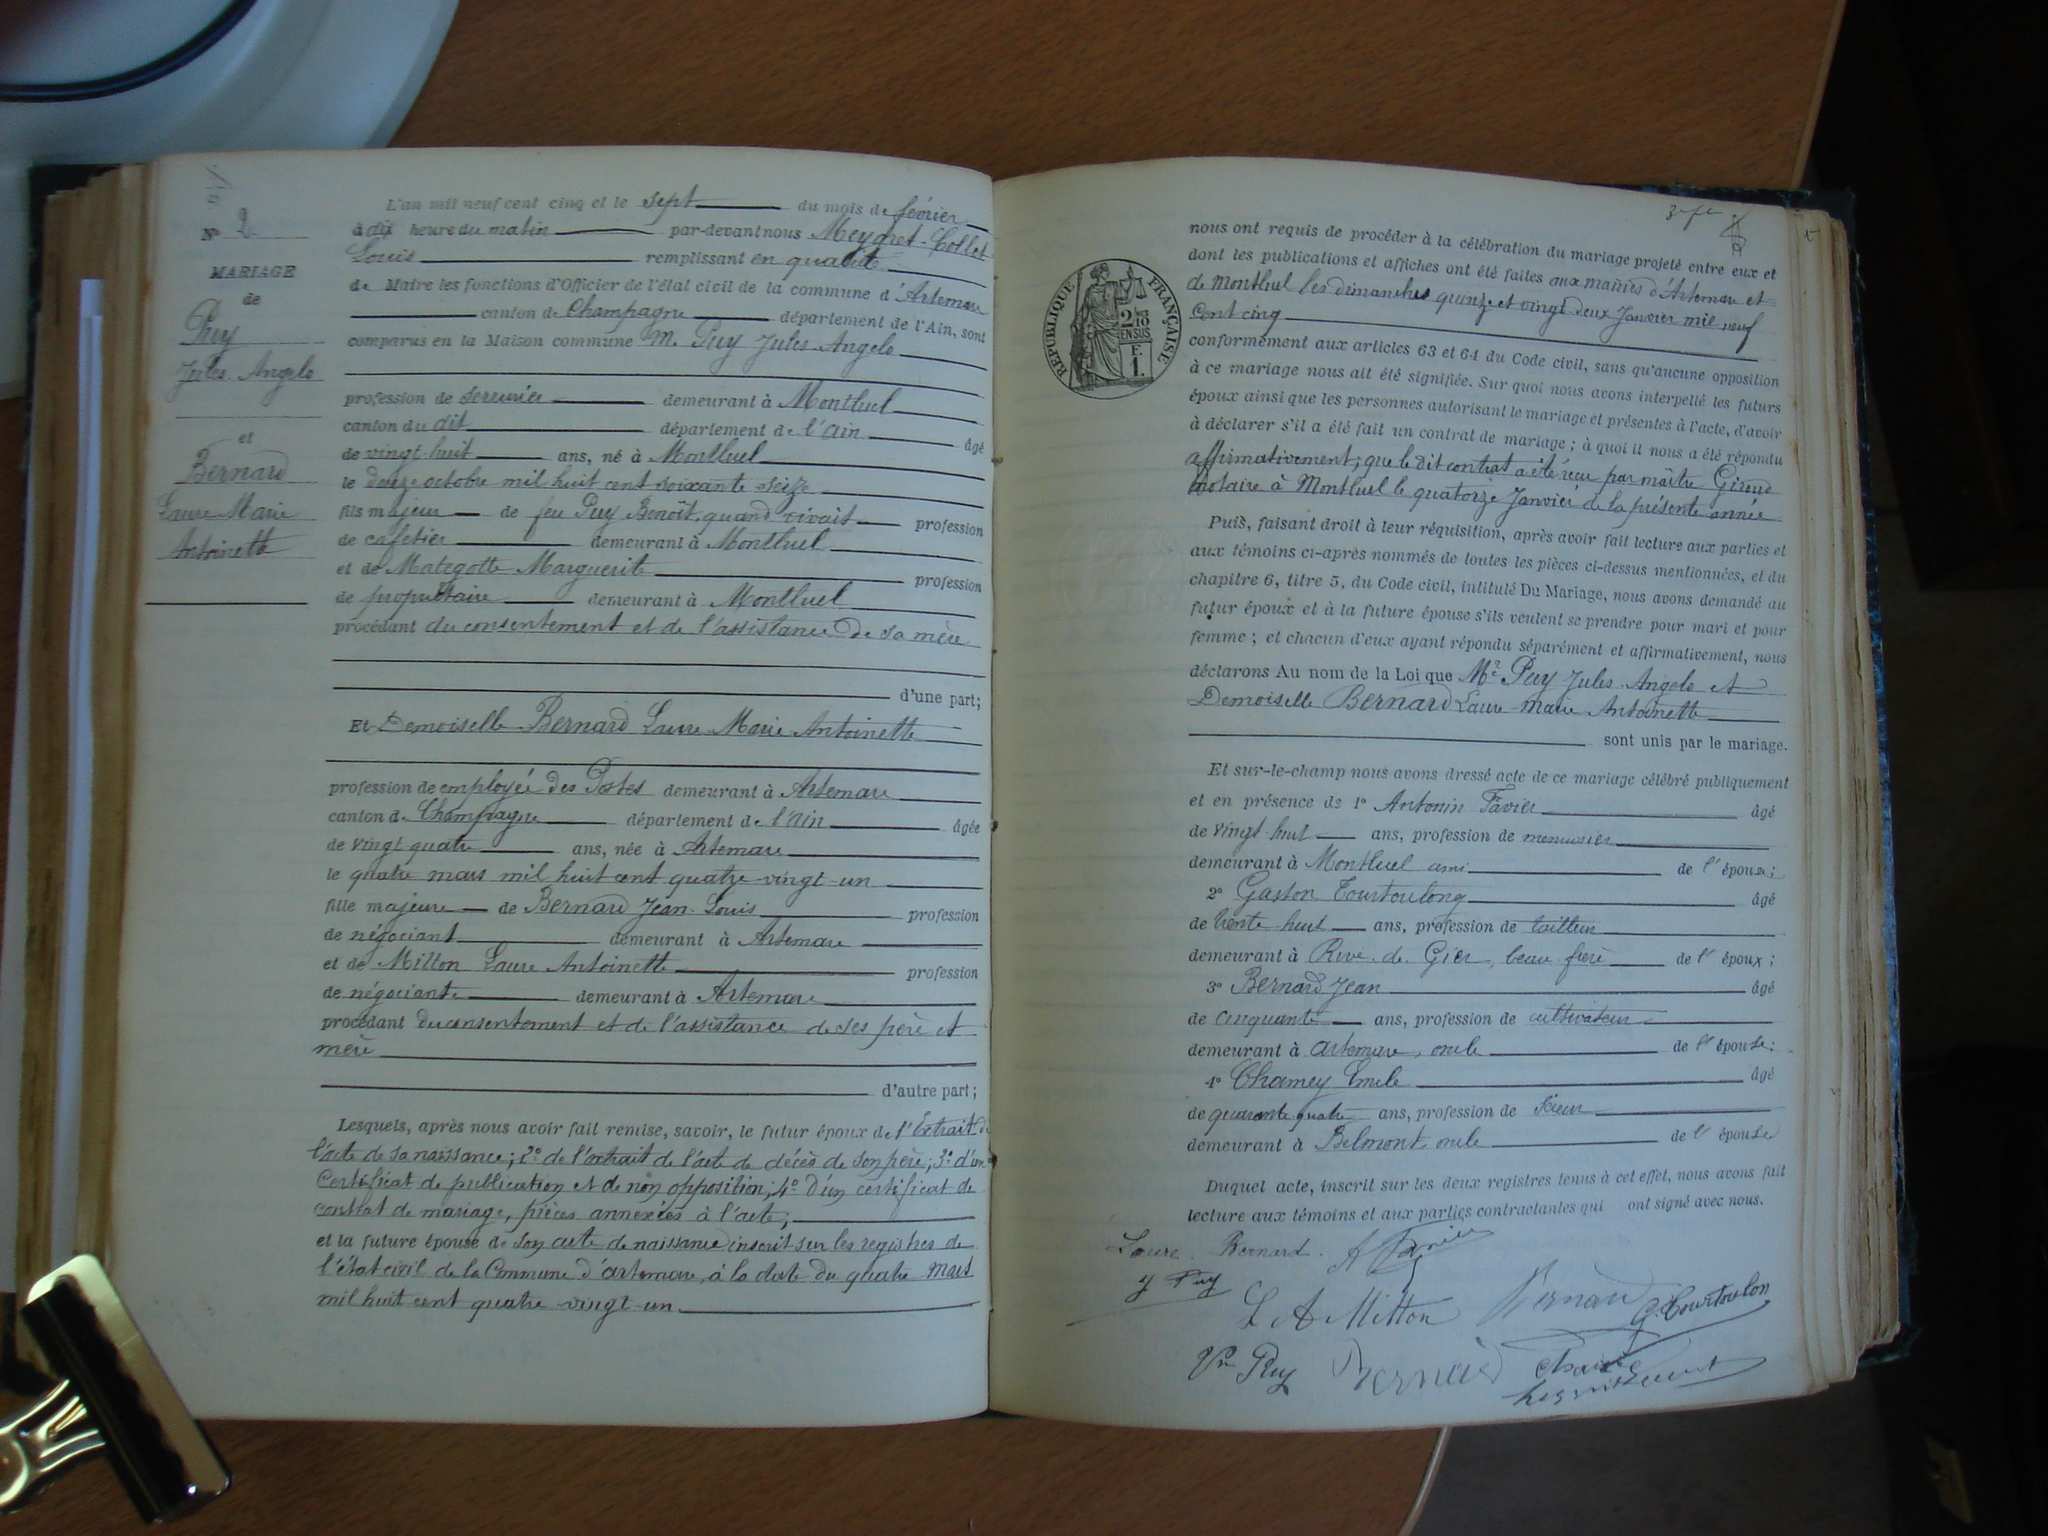 N° 2
MARIAGE
de
Puy
Jules Angelo
et
Bernard
Laure Marie
Antoinette
L'an mil neuf cent cinq et le sept du mois de février
à dix heure du matin par-devant nous Meygret-Collet
Louis remplissant en qualité
de Maire les fonctions d'Officier de l'état civil de la commune d'Artemare
canton de Champagne département de l'Ain, sont
comparus en la Maison commune M. Puy Jules Angelo
profession de serrurier demeurant à Montluel
canton du dit département de l'Ain âgé
de vingt huit ans, né à Montluel
le douze octobre mil huit cent soixante seize
fils majeur de feu Puy Benoît, quand vivait profession
de cafetier demeurant à Montluel
et de Marguerite profession
de propriétaire demeurant à Montluel
procédant du consentement et de l'assistance de sa mère
d'une part;
Et Demoiselle Bernard Laure Marie Antoinette
profession de employée des Postes demeurant à Artemare
canton de Champagne département de l'Ain âgée
de vingt quatre ans, née à Artemare
le quatre mars mil huit cent quatre-vingt-un
fille majeure de Bernard Jean-Louis profession
de négociant demeurant à Artemare
et de Mitton Laure Antoinette profession
de négociante demeurant à Artemare
procédant du consentement et de l'assistance de ses père et
mère
d'autre part;
Lesquels, après nous avoir fait remise, savoir, le futur époux de l'Extrait de
l'acte de sa naissance; 2° de l'extrait de l'acte de décès de son père; 3° d'un
Certificat de publication et de non opposition; 4° d'un certificat de
contrat de mariage, pièces annexées à l'acte;
et la future épouse de son acte de naissance inscrit sur les registres de
l'état civil de la Commune d'artemare, à la date du quatre mars
mil huit cent quatre-vingt-un
RÉPUBLIQUE FRANÇAISE
nous ont requis de procéder à la célébration du mariage projeté entre eux et
dont les publications et affiches ont été faites aux mairies d'Artemare et
de Montluel les dimanches quinze et vingt deux Janvier mil neuf
cent cinq
conformément aux articles 63 et 64 du Code civil, sans qu'aucune opposition
à ce mariage nous ait été signifiée. Sur quoi nous avons interpellé les futurs
époux ainsi que les personnes autorisant le mariage et présentes à l'acte, d'avoir
à déclarer s'il a été fait un contrat de mariage; à quoi il nous a été répondu
affirmativement; que le dit contrat a été reçu par maître Giroud
notaire à Montluel le quatorze Janvier de la présente année
Puis, faisant droit à leur réquisition, après avoir fait lecture aux parties et
aux témoins ci-après nommés de toutes les pièces ci-dessus mentionnées, et du
chapitre 6, titre 5, du Code civil, intitulé Du Mariage, nous avons demandé au
futur époux et à la future épouse s'ils veulent se prendre pour mari et pour
femme; et chacun d'eux ayant répondu séparément et affirmativement, nous
déclarons Au nom de la Loi que Mr Puy Jules Angelo et
Demoiselle Bernard Laure Marie Antoinette
sont unis par le mariage.
Et sur-le-champ nous avons dressé acte de ce mariage célébré publiquement
et en présence de 1° Antonin Favier âgé
de vingt huit ans, profession de menuisier
demeurant à Montluel ami de l'épouse;
2° Gaston Courtoulong âgé
de trente-huit ans, profession de tailleur
demeurant à Rive-de-Gier, beau-frère de l'époux;
3° Bernard Jean âgé
de cinquante ans, profession de cultivateur
demeurant à artemare, oncle de l'épouse;
4° Charvey Emile âgé
de quarante quatre ans, profession de
demeurant à Belmont, oncle de l'épouse
Duquel acte, inscrit sur les deux registres tenus à cet effet, nous avons fait
lecture aux témoins et aux parties contractantes qui ont signé avec nous.
Laure Bernard A Favier
J Puy
L A Mitton Bernard G. Courtoulon
Vve Puy Bernard